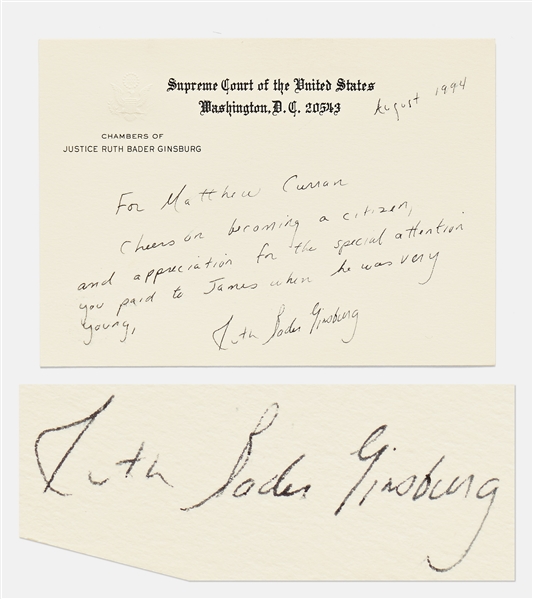 Supreme Court of the United States
Washington, D.C. 20543
August 1994
CHAMBERS OF
JUSTICE RUTH BADER GINSBURG
For Matthew Curran
Cheers on becoming a citizen,
and appreciation for the special attention
you paid to James when he was very
young,
Ruth Bader Ginsburg
Ruth Bader Ginsburg